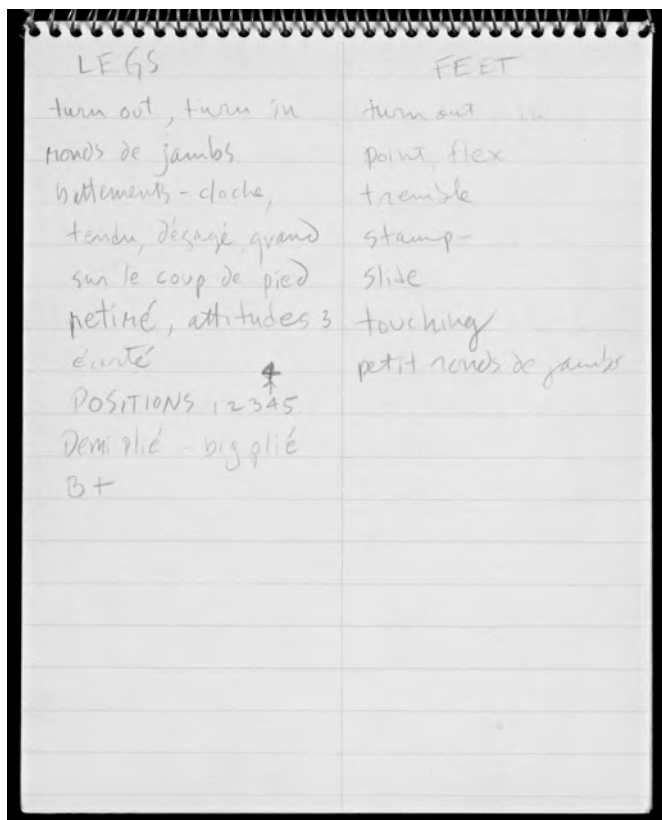 LEGS
turn out, turn in
ronds de jambs
battements - cloche,
tendu, dégagé, grand
sur le coup de pied
retiré, attitudes 3
écarté
4
POSITIONS 1 2 3 4 5
Demi plié - big plié
B+
FEET
turn out in
point, flex
tremble
stamp -
slide
touching
petit ronds de jambs